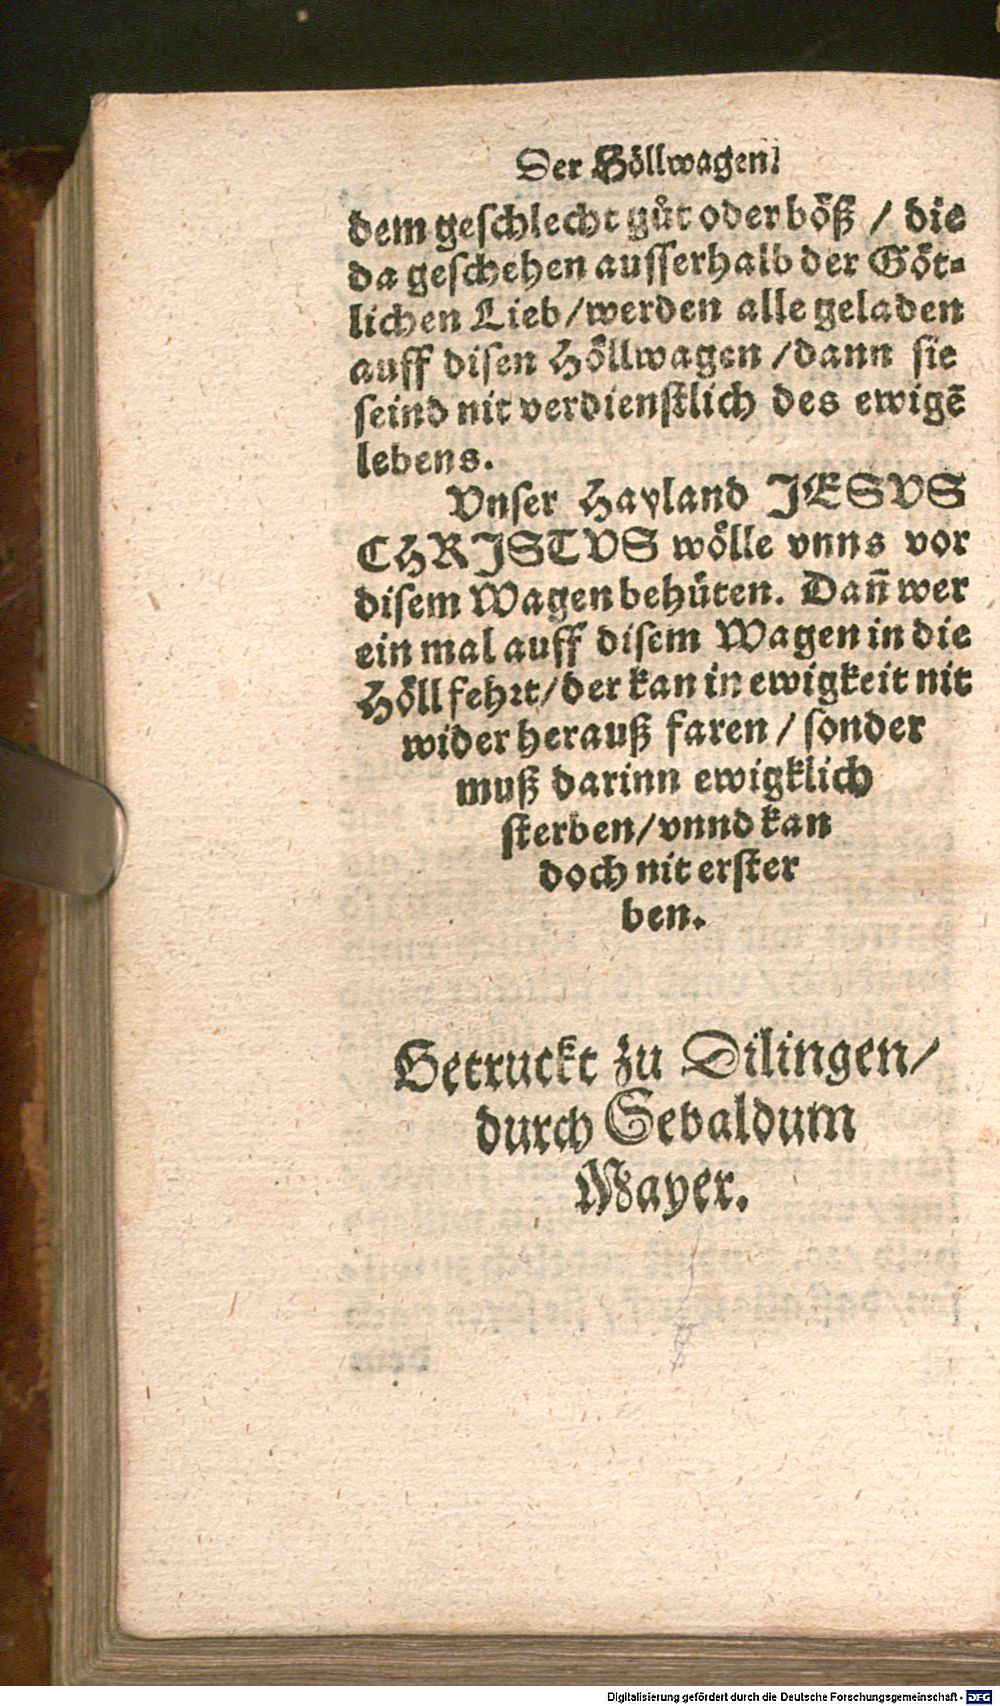 Der Höllwagen.
dem geschlecht gůt oder böß / die
da geschehen ausserhalb der Göt-
lichen Lieb/werden alle geladen
auff disen Höllwagen /dann sie
seind nit verdienstlich des ewigẽ
lebens.
Vnser Hayland JESVS
CHRISTVS wölle vnns vor
disem Wagen behüten. Dañ wer
ein mal auff disem Wagen in die
Höll fehrt/der kan in ewigkeit nit
wider herauß faren / sonder
muß darinn ewigklich
sterben/vnnd kan
doch nit erster
ben.
Getruckt zu Dilingen/
durch Sebaldum
Mayer.
Digitalisierung gefördert durch die Deutsche Forschungsgemeinschaft - DFG